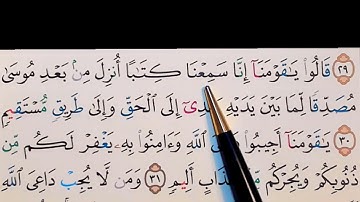 ٢٩ قَالُوا۟ يَـٰقَوْمَنَآ إِنَّا سَمِعْنَا كِتَـٰبًا أُنزِلَ مِنۢ بَعْدِ مُوسَىٰ
مُصَدِّقًا لِّمَا بَيْنَ يَدَيْهِ إِلَى ٱلْحَقِّ وَإِلَىٰ طَرِيقٍ مُّسْتَقِيمٍ
٣٠ يَـٰقَوْمَنَآ أَجِيبُوا۟ ٱللَّهِ وَءَامِنُوا۟ بِهِۦ يَغْفِرْ لَكُم مِّن
ذُنُوبِكُمْ وَيُجِرْكُم أَلِيمٍ ٣١ وَمَن لَّا يُجِبْ دَاعِىَ ٱللَّهِ